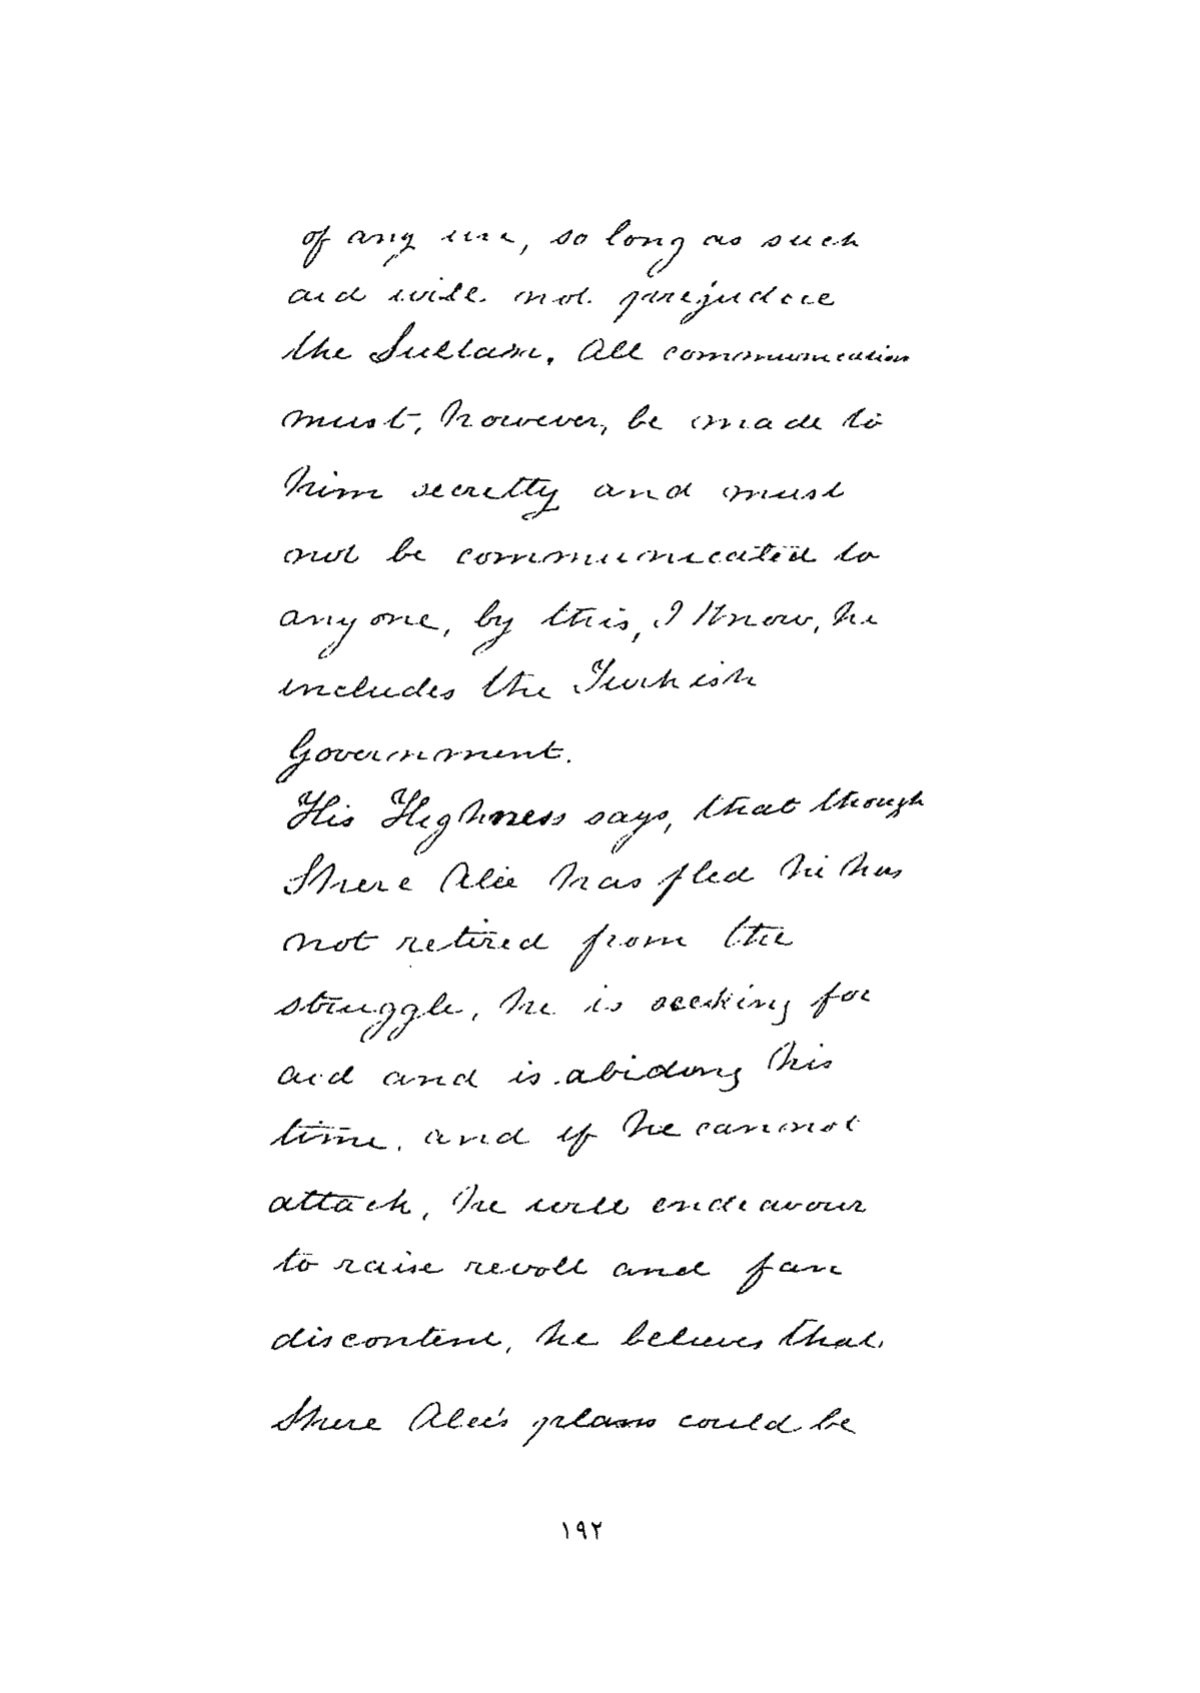 of any use, so long as such
aid will not prejudice
the Sultan. All communication
must, however, be made to
him secretly and must
not be communicated to
anyone, by this, I know, he
includes the Turkish
Government.
His Highness says, that though
Shere Alee has fled he has
not retired from the
struggle, he is seeking for
aid and is abiding his
time. and if he cannot
attack, he will endeavour
to raise revolt and fan
discontent, he believes that
Shere Alee's plans could be
١٩٢